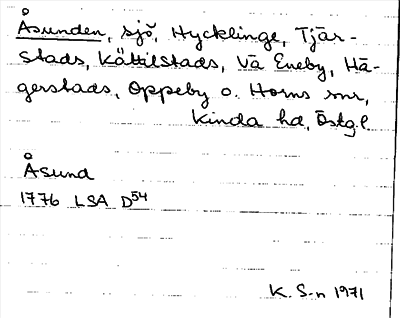 Åsunden, sjö, Hycklinge, Tjär-
stads, Kättilstads, Vä Eneby, Hä-
gerstads, Oppeby o. Horns snr,
Kinda hd, Östg.l.
Åsund
1776 LSA D54
K. S-n 1971